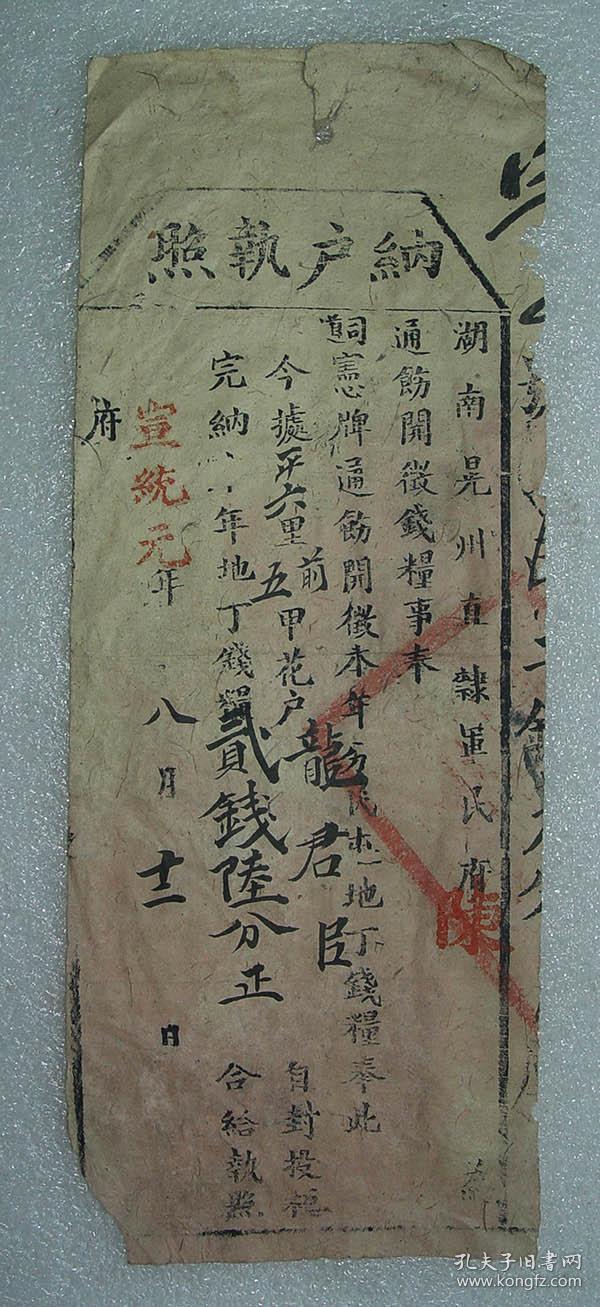 納戶執照
湖南晃州直隸軍民府陳
通飭開徵錢糧事奉
憲牌通飭開徵本年民地丁錢糧奉此
今據平六里前五甲花戶龍君臣自封投櫃
完納年地丁錢糧貳錢陸分正合給執照
宣統元年八月十二日
府
孔夫子旧书网
www.kongfz.com